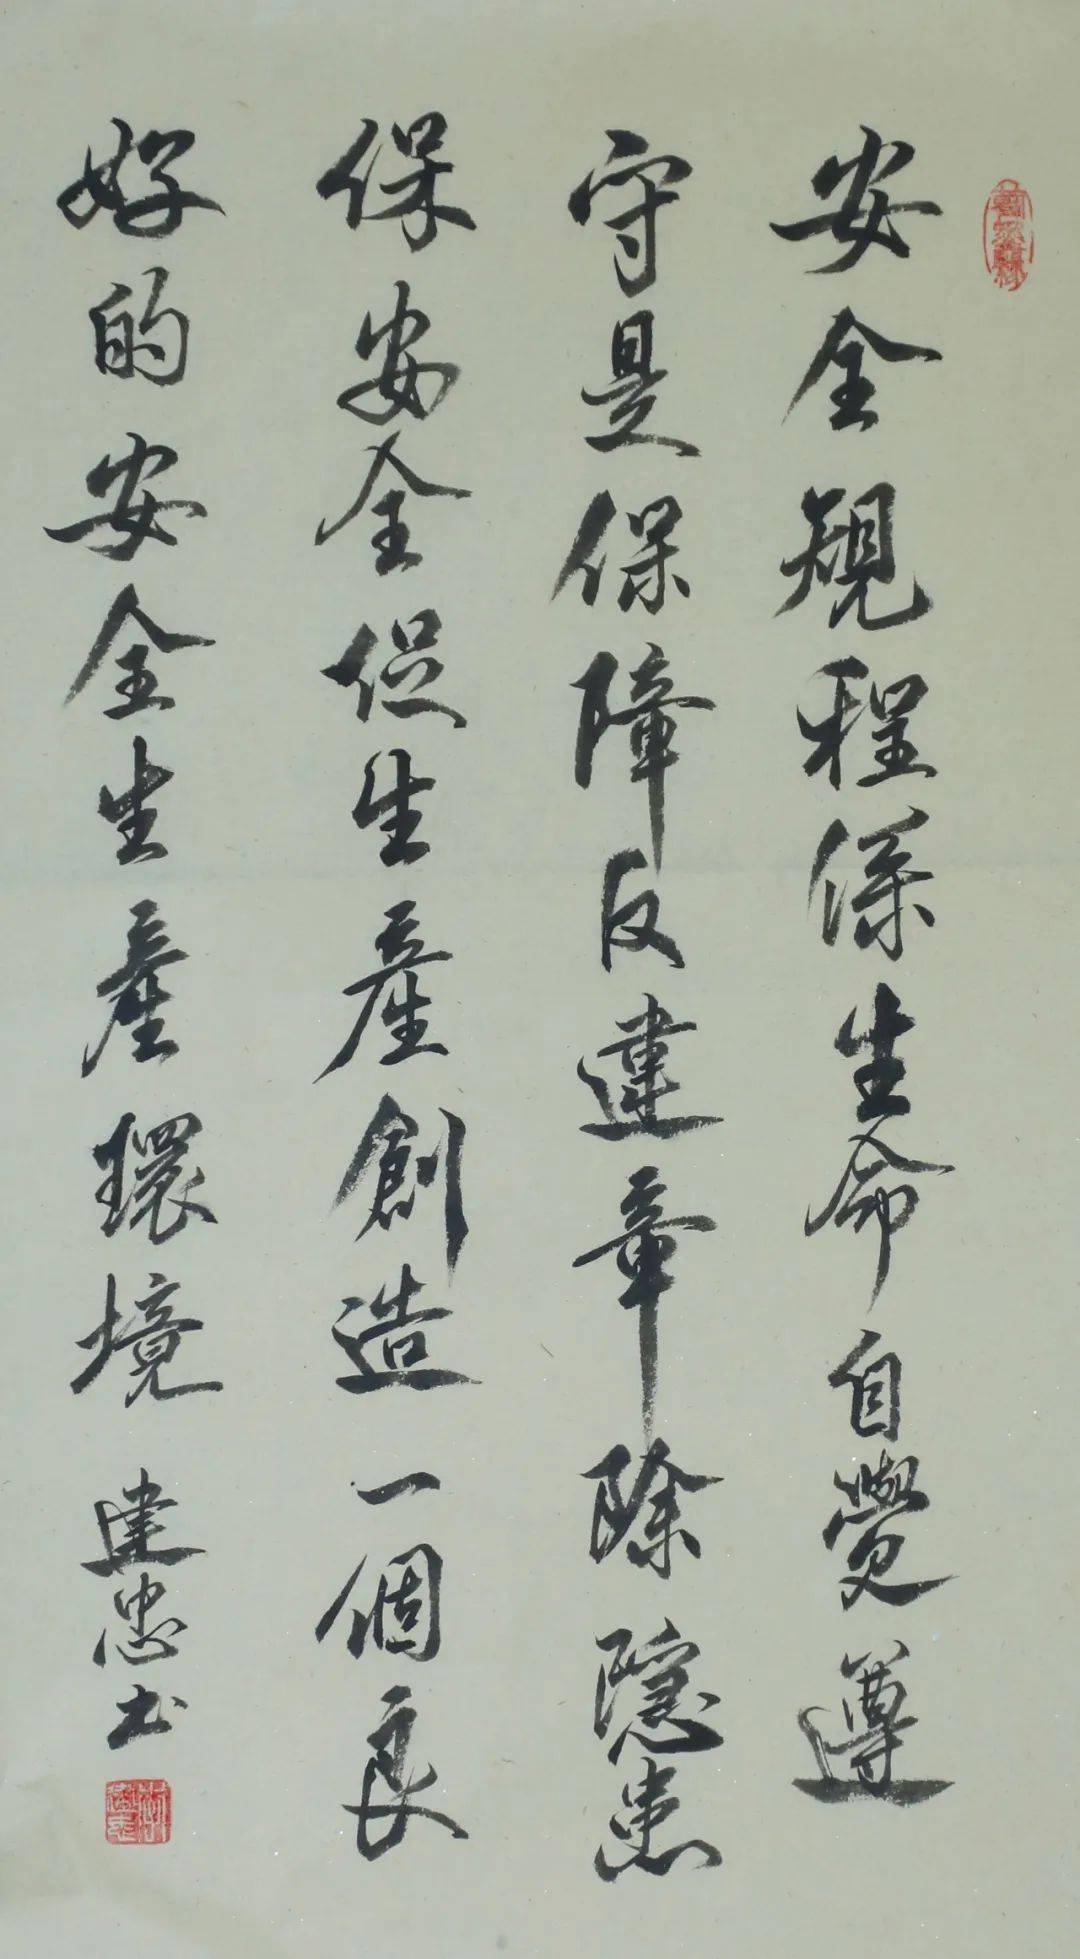 安全規程係生命自覺遵
守是保障反違章除隱患
保安全促生産創造一個良
好的安全生産環境
建忠书